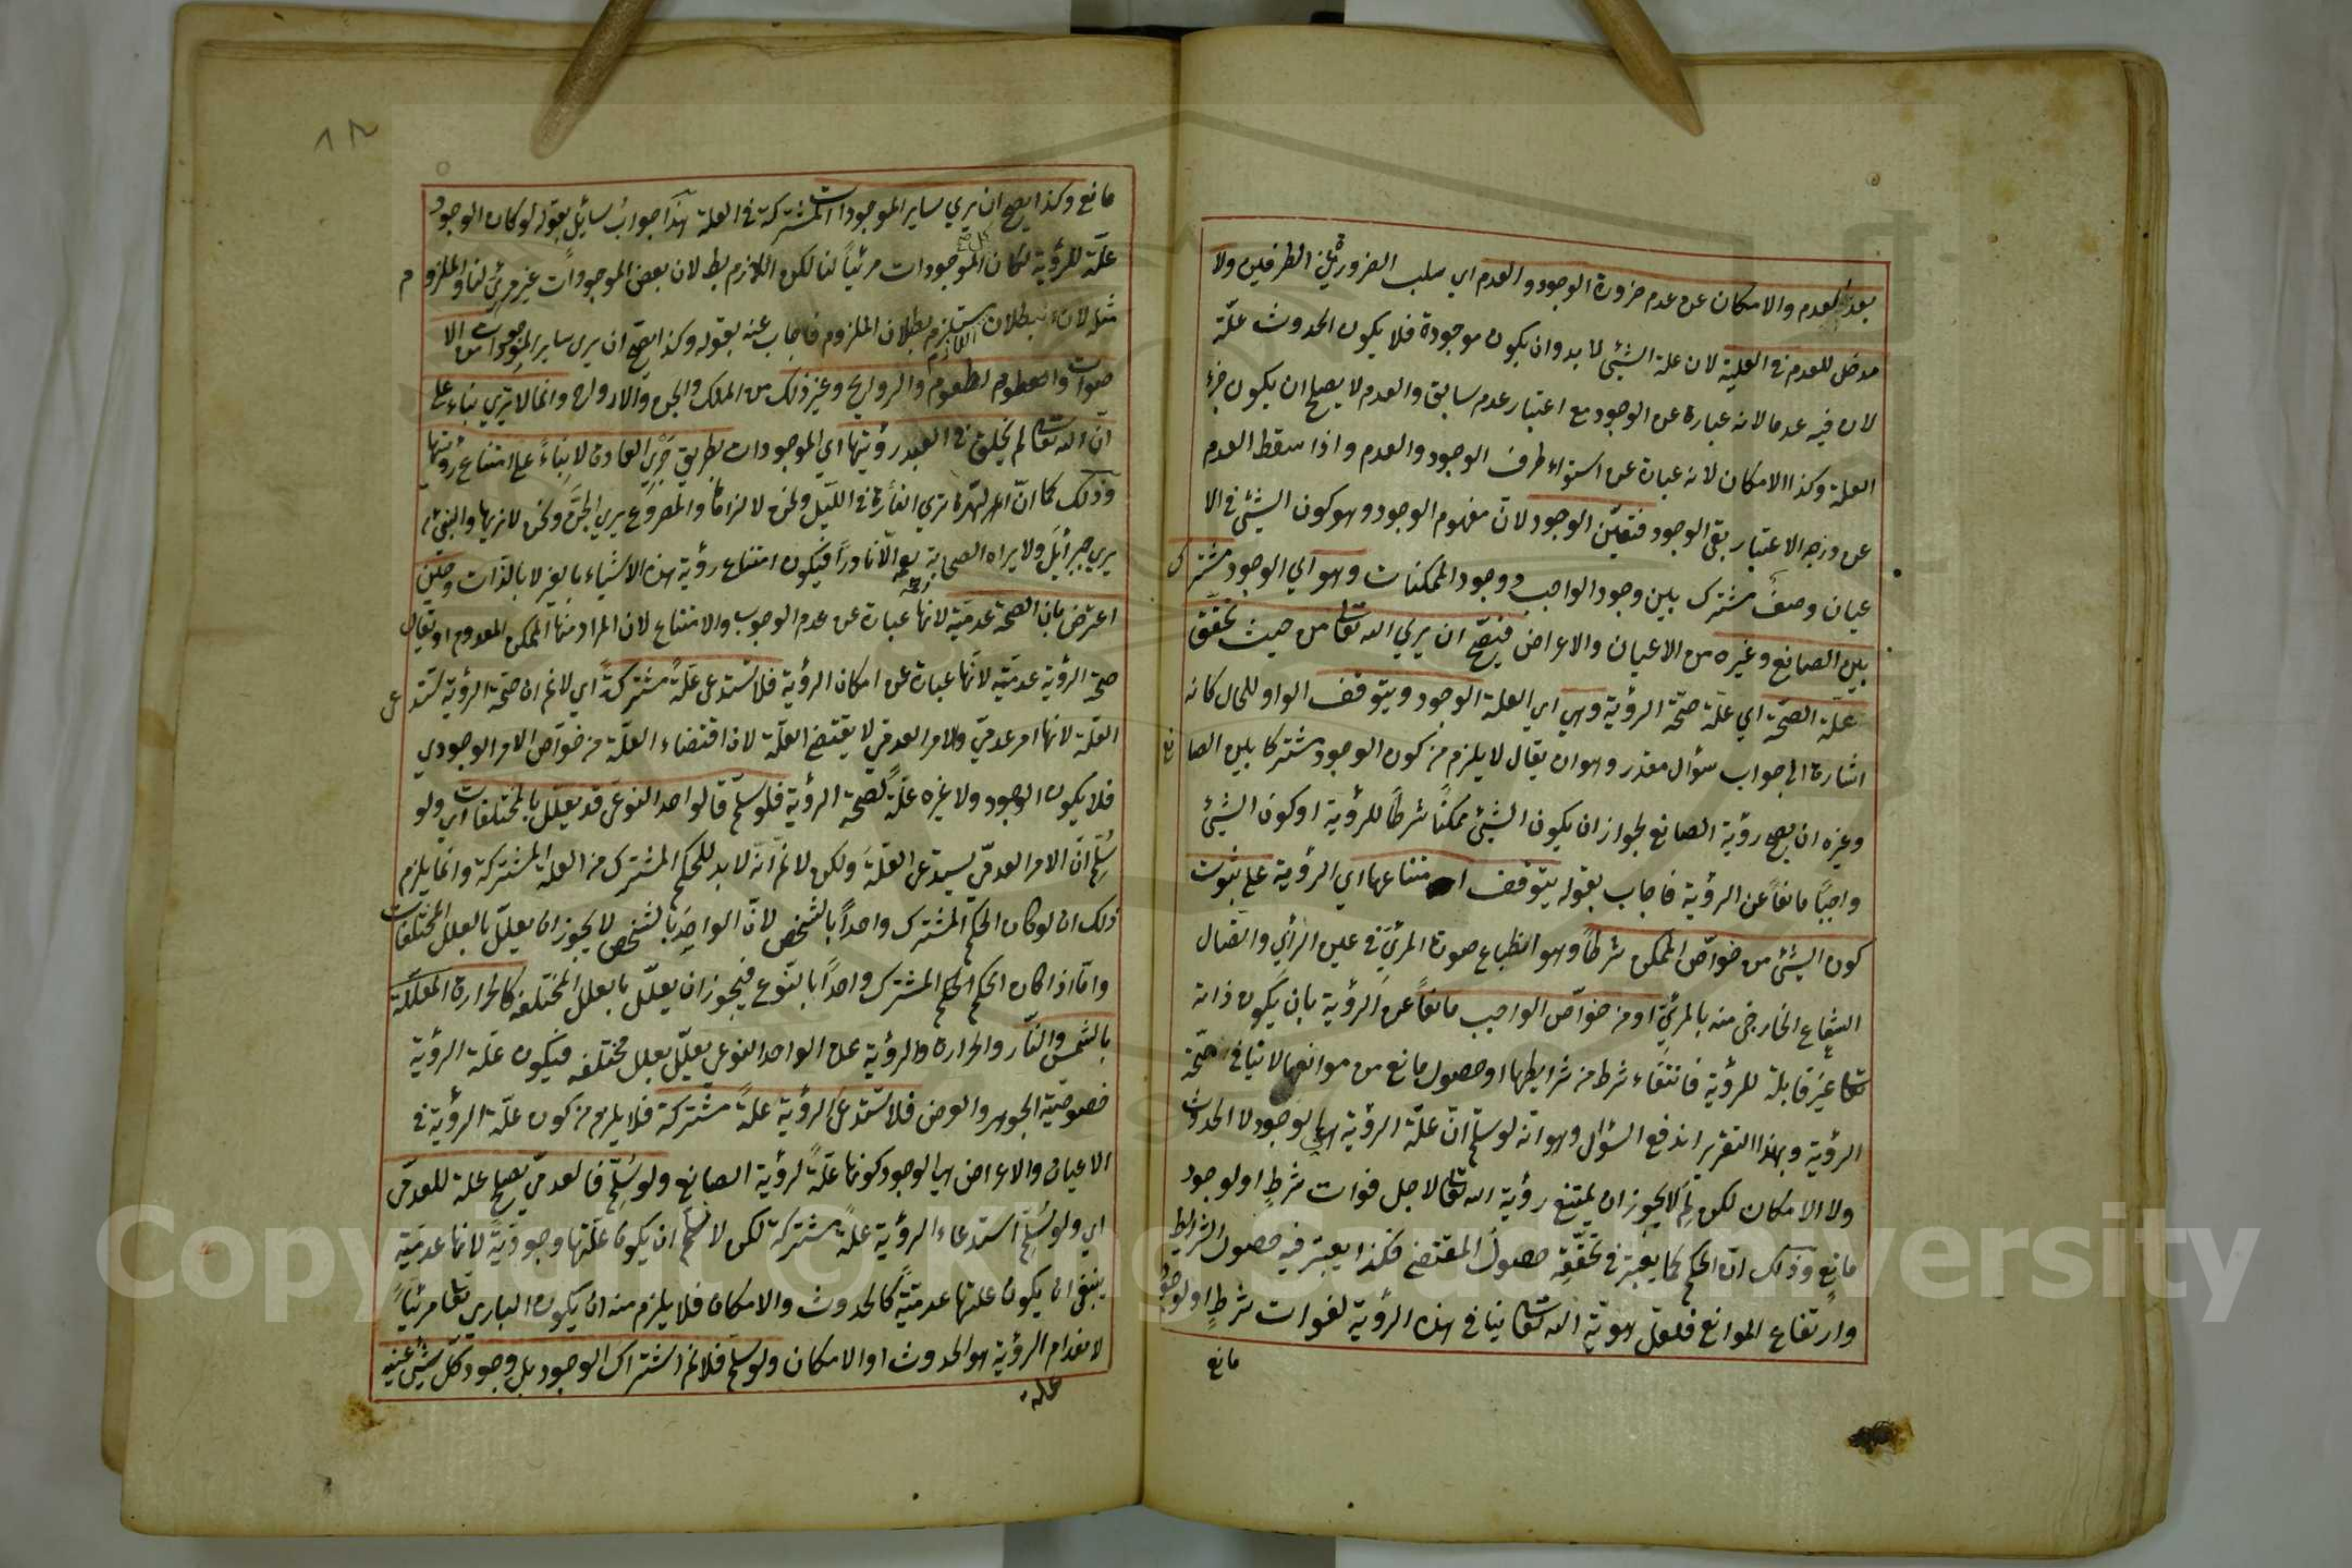 بعد العدم والامكان عن عدم ضرورة الوجود والعدم اي سلب الضرورة عن الطرفين ولا
مدخل للعدم في العلية لان علة الشيئ لا بد وان يكون موجودة فلا يكون الحدوث علّة
لان فيه عدما لانه عبارة عن الوجود مع اعتبار عدم سابق والعدم لا يصلح ان يكون جزء
العلة وكذا الامكان لانه عبارة عن استواء طرف الوجود والعدم واذا سقط العدم
عن درجه الاعتبار بقي الوجود فتعيّن الوجود لانّ مفهوم الوجود وهو كون الشيئ في الا
عيان وصفٌ مشترك بين وجود الواجب ووجود الممكنات وهو اي الوجود مشترك
بين الصانع وغيره من الاعيان والاعراض فيصحّ ان يري الله تعالى من حيث تحقق
علّة الصحّة اي علّة صحّة الرؤية وهي اي العلة الوجود ويتوقف الواو للحال كانه
اشارة الى جواب سؤال مقدر وهو ان يقال لا يلزم من كون الوجود مشتركا بين الصانع
وغيره ان يصح رؤية الصانع لجواز ان يكون الشيئ ممكنًا شرطًا للرؤية او كون الشيئ
واجبًا مانعًا عن الرؤية فاجاب بقوله يتوقف امتناعها اي الرؤية على ثبوت
كون الشيئ من خواصّ الممكن شرطًا وهو انطباع صورة المرئي في عين الرأي واتصال
الشعاع الخارجي منه بالمرئيّ او من خواصّ الواجب مانعًا عن الرؤية بان يكون ذاته
تعالى غير قابلة للرؤية فانتفاء شرط من شرايطها او حصول مانع من موانعها لا ينافي صحّة
الرؤية وبهذا التقرير اندفع السؤال وهو انه لو سلّم انّ علّة الرؤية هي الوجود لا الحدوث
ولا الامكان لكن لِمَ لا يجوز ان يمتنع رؤية الله تعالى لاجل فوات شرطٍ او لوجود
مانعٍ وذلك انّ الحكم كما يعتبر في تحقّقه حصولُ المقتضي فكذا يعتبر فيه حصول الشرايط
وارتفاع الموانع فلعلّ هويّة الله تعالى ينافي هذه الرؤية لفوات شرطٍ او لوجود
مانع
مانع وكذا يصح ان يري ساير الموجودات المشتركة في العلة هذا جوابُ سائلٍ بقوله لو كان الوجود
علّة للرؤية لكان كل الموجودات مرئيًا لنا لكن اللازم بطلان بعض الموجودات غير مرئي لنا والملزوم
مثله لان بطلان اللازم يستلزم بطلان الملزوم فاجاب عنه بقوله وكذا يصح ان يرى ساير الموجودات من الا
صوات والطعوم والروايح وغير ذلك من الملك والجن والارواح وانما لا يري بناء على
انّ الله تعالى لم يخلق في العبد رؤيتها اي الموجودات بطريق جَرْيِ العادة لا بناءً على امتناع رؤيتها
وذلك كما انّ الهرة تري الفأرة في الليل ونحن لا نراها والمصروع يري الجنَّ ونحن لا نريها والنبي م
يري جبرائيل ولا يراه الصحابة الّا نادرًا فيكون امتناع رؤية هذه الاشياء بالغير لا بالذات وحين
اعترض بان الصحة عدميّة لانها عبارة عن عدم الوجوب والامتناع لان المراد منها الممكن المعدوم او يقال
صحة الرؤية عدميّة لانّها عبارة عن امكان الرؤية فلا تستدعي علّةً مشتركةً اي لانم ان صحّة الرؤية تستدعي
العلّة لانها امر عدميّ والامر العدمي لا يقتضي العلّة لان اقتضاء العلّة من خواصّ الامر الوجودي
فلا يكون الوجود ولا غيره علّة لصحة الرؤية فلو سلّم فالواحد النوعي قد يعلّل بالمختلفات اي ولو
سُلِّم انّ الامر العدميّ يستدعي العلّة ولكن لانم انّه لا بد للحكم المشترك من العلة المشتركة وانما يلزم
ذلك ان لو كان الحكم المشترك واحدًا بالشخص لانّ الواحِدَ بالشخص لا يجوز ان يعلّل بالعلل المختلفات
وامّا اذا كان الحكم المشترك واحدًا بالنّوع فيجوز ان يعلّل بالعلل المختلفه كالحرارة المعلّلة
بالشمس والنّار والحرارة والرؤية على الواحد النوعي يعلّل بعلل مختلفه فيكون علّة الرؤية
خصوصيّة الجوهر والعرض فلا تستدعي الرؤية علةً مشتركة فلا يلزم من كون علّة الرؤية في
الاعيان والاعراض هي الوجود كونها علّةً لرؤية الصانع ولو سُلّم فالعدميّ يصلح علة للعدميّ
اي ولو سُلّم استدعاء الرؤية علةً مشتركة لكن لا نسلّم ان يكون علّتها وجوديّةً لانها عدميّة
ينبغي ان يكون علتها عدميّةً كالحدوث والامكان فلا يلزم منه ان يكون الباري تعالى مرئيًا
لانعدام الرؤية هو الحدوث او الامكان ولو سلّم فلانم اشتراك الوجود بل وجود كلّ شيئ عينه